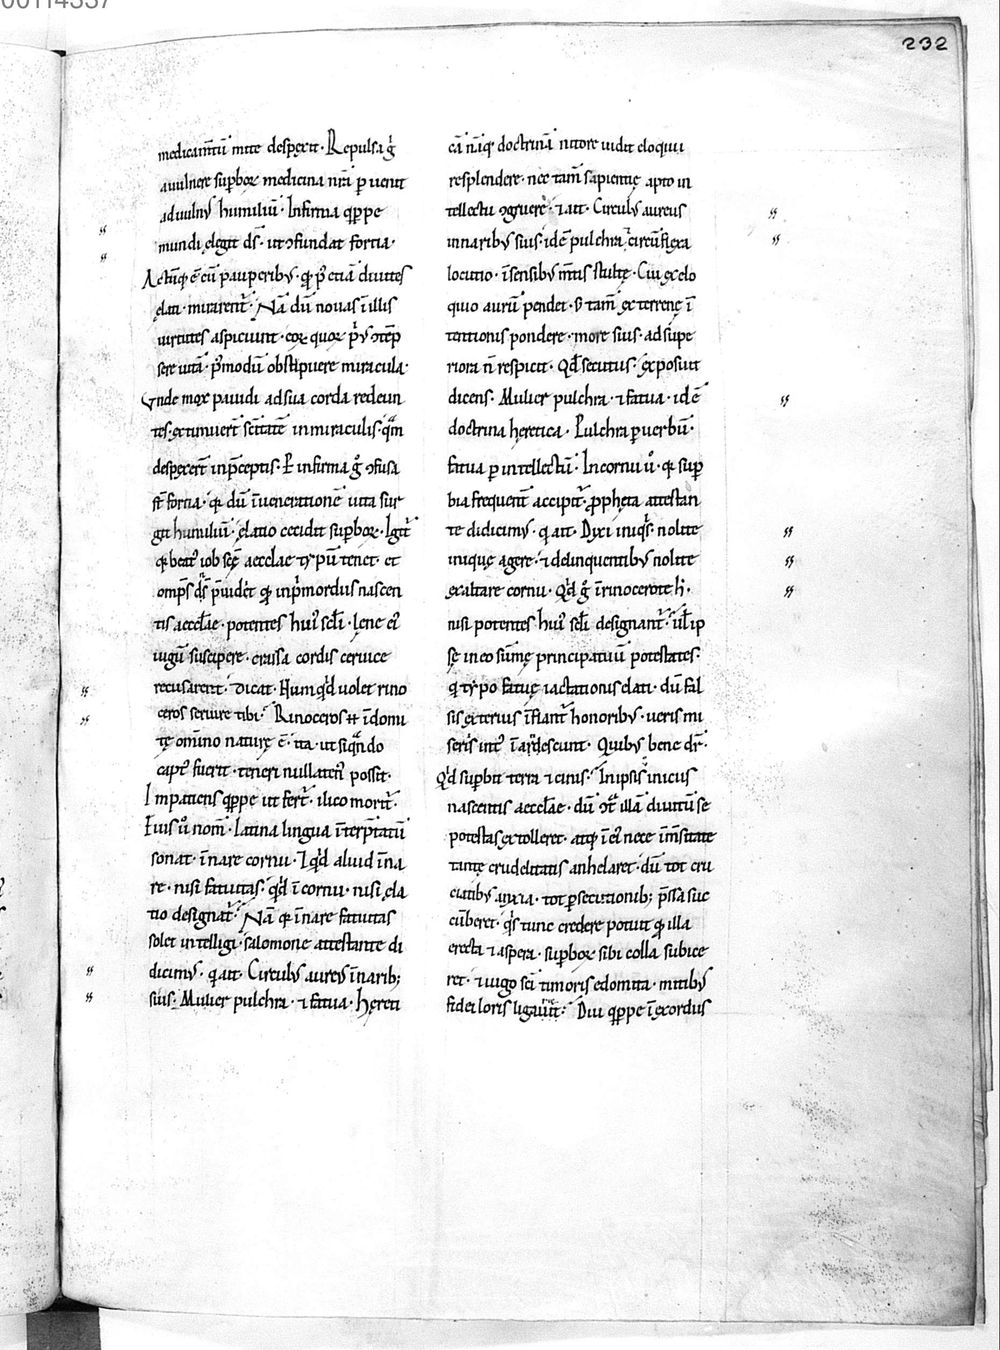 00114337
232
medicam̅tū mite desp̲exit· Repulsa ġ
a uulnere sup̲boꝝ medicina nr̅a p̲uenit
ad uulnus humiliū· Infirma q̲ppe
mundi elegit ds̅· ut ꝯfundat fortia·
Actūq; ē cū pauperibus· qđ p̲ etiā diuites
elati· mirarent᷑· Nā dū nouas ī illis
uirtutes aspiciunt· eoꝝ quoꝝ p̲us ꝯtēp
sere uitā· p̲modū obstipuere miracula·
Vnde mox pauidi ad sua corda redeun
tes· extimuer̄t sc̅itatē in miraculis· quā
despexer̄t in p̄ceptis· P̲ infirma ġ ꝯfusa
st̅ fortia· qa dū ī ueneratione uita sur
git humiliū· elatio cecidit sup̲boꝝ· Igit᷑
qa beat᷑ iob scę aecclae typū tenet· et
omp̄s ds̅ p̄uidet qđ in p̲mordiis nascen
tis aecclae· potentes hui᷑ scl̅i· lene ei᷑
iugū suscipere· erisa cordis ceruice
recusarent· dicat· Numqđ uolet rino
ceros seruire tibi· Rinoceros ī domi
tę om̅ino naturę ē· ita· ut si q̅ndo
capt᷑ fuerit· teneri nullaten᷑ possit·
Impatiens q̲ppe ut fert᷑· ilico morit᷑·
Eius ů nom̅· latina lingua īterp̄tatū
sonat· ī nare cornu· Et qđ aliud ī na
re· nisi fatuitas· qđ ī cornu· nisi ela
tio designat᷑· Nā qa ī nare fatuitas
solet intelligi· salomone attestante di
dicimus· q̲ ait· Circulus aureus ī narib;
suis· Mulier pulchra· ⁊ fatua· hęreti
cā n̅āq; doctrinā nitore uidit eloquii
resplendere· nec tam̅ sapientię apto in
tellectu ꝯgruere· ⁊ ait· Circulus aureus
in naribus suis· idē pulchra ⁊ circūflexa
locutio· ī sensibus m̅tis stultę· Cui ex elo
quio aurū pendet· s; tam̅ ex terrenę ī
tentionis pondere· more suis· ad supe
riora n̅ respicit· Qđ secutus· exposuit
dicens· Mulier pulchra· ⁊ fatua· id ē
doctrina heretica· Pulchra p̲ uerbū·
fatua p̲ intellectū· In cornu ů· qa sup̲
bia frequent̅ accipit᷑· p̲pheta attestan
te didicimus· q̲ ait· Dixi iniqs̅· nolite
inique agere· ⁊ delinquentibus nolite
exaltare cornu· Qđ ġ ī rinocerote h̅·
nisi potentes hui᷑ scl̅i designant᷑· ul̅ ip
sę in eo sūmę principatuū potestates·
q̲ typo fatuę iactationis elati· dū fal
sis exterius īflant᷑ honoribus· ueris mi
seriis int᷑ ī ardescunt· Quibus bene dr̅·
Qđ sup̲bit terra ⁊ cinis· In ipsis inicus
nascentis aecclae· dū ꝯt̅ illā diuitū se
potestas extolleret· atq; ī ei᷑ nece īm̅sitate
tantę crudelitatis anhelaret· dū tot cru
ciatibus anxia· tot p̲secutionib; p̄ssa suc
cūberet· qs̅ tunc credere potuit qđ illa
erecta ⁊ aspera· sup̲boꝝ sibi colla subice
ret· ⁊ iugo sci̅ timoris edomita· mitibus
fidei loris ligaret· Diu q̲ppe ī exordiis